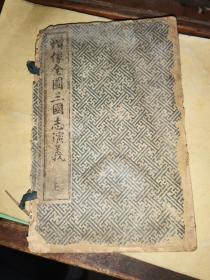 繡像全圖三國志演義 上